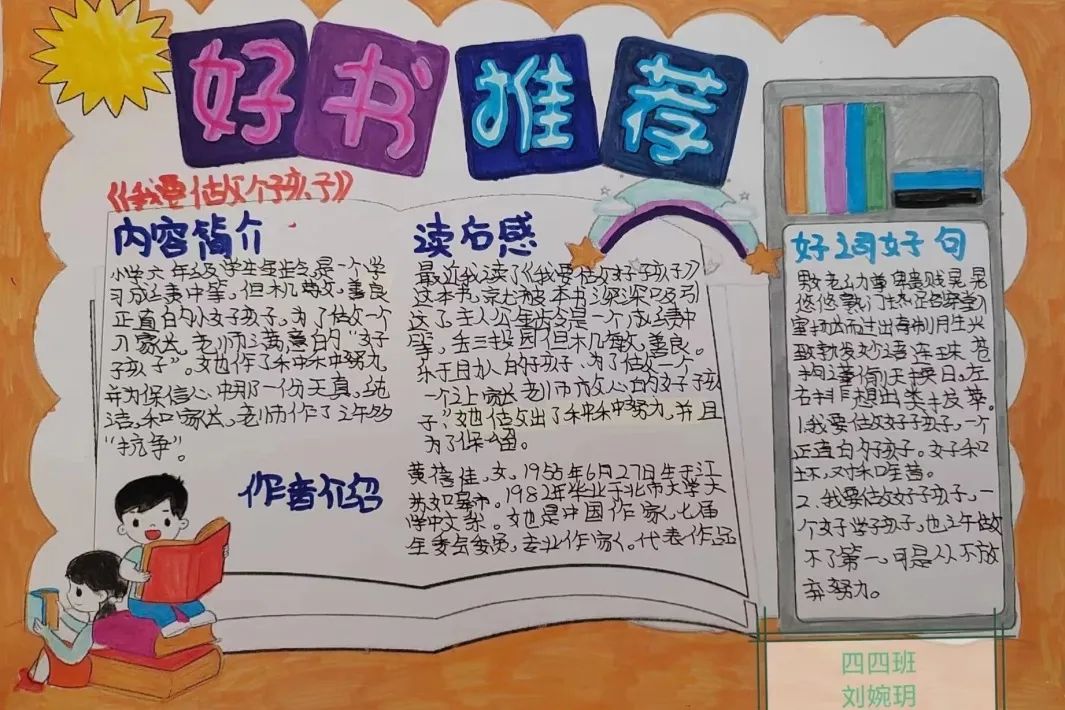 好书推荐
《我要做个好孩子》
内容简介
小学六年级学生金铃是一个学
习成绩中等,但机敏,善良
正直的小女子孩子,为了做一个
家长,老师满意的“好
子孩子”。她作了种种努力,
并为保信心中那一份天真,纯
洁,和家长,老师作了许多
“抗争”。
读后感
最近我读了《我要做好子孩子》
这本书,就被本书深深吸引
这了,主人公金铃是一个成绩中
等,但机敏,善良。
乐于助人的好孩子,为了做一个
一个让家长老师放心的好子孩
子,她做出了种种努力,并且
为了保留。
作者介绍
黄蓓佳,女,1955年6月27日生于江
苏如皋市。1982年毕业于北京大学文
学中文系。她是中国作家,七届
全委会委员,专业作家。代表作品
好词好句
致勃发妙语连珠 苍
偷天换日,左
右排 想出类拔萃。
1.我要做好子孩子,一个
正直的好孩子。女子和
2.我要做好子孩子,一
个好子学子孩子,也许做
不了第一,可是从不放
弃努力。
四四班
刘婉玥